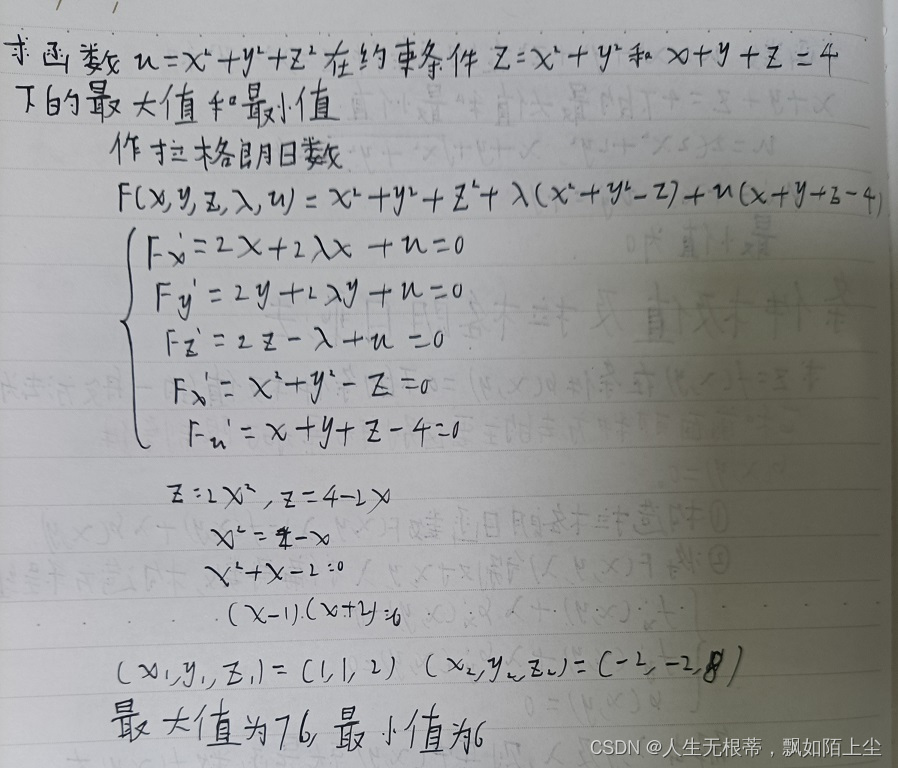 求函数 u=x²+y²+z² 在约束条件 z=x²+y² 和 x+y+z=4
下的最大值和最小值
作拉格朗日数
F(x,y,z,λ,u)=x²+y²+z²+λ(x²+y²-z)+u(x+y+z-4)
Fx'=2x+2λx+u=0
Fy'=2y+2λy+u=0
Fz'=2z-λ+u=0
Fλ'=x²+y²-z=0
Fu'=x+y+z-4=0
z=2x²,z=4-2x
x²=2-x
x²+x-2=0
(x-1)·(x+2)=0
(x₁,y₁,z₁)=(1,1,2) (x₂,y₂,z₂)=(-2,-2,8)
最大值为76,最小值为6
CSDN @人生无根蒂，飘如陌上尘